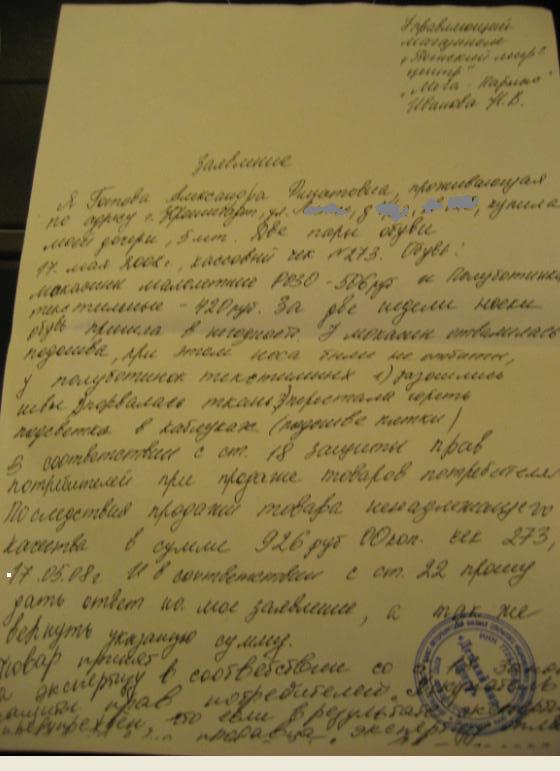 Управляющий
магазином
"Детский мир"
центр"
Иванова Н.В.
Заявление
Я Александра проживающая
по адресу г. ул. купила
моей дочери, 5 лет. Две пары обуви
17. мая 2008г, кассовый чек №273. Обувь:
мокасины малолетние - 506руб и Полуботинки
текстильные - 420 руб. За две недели носки
обувь пришла в негодность. У мокасин отвалилась
подошва, при этом носа были не отбиты,
у полуботинок текстильных 1) разошлись
швы 2) порвалась ткань 3) перестала гореть
подсветка в каблуках (подошве пятки)
В соответствии с ст. 18 защиты прав
потребителей при продаже товаров потребителя
Последствия продажи товара ненадлежащего
качества в сумме 926 руб 00коп. чек 273,
17.05.08г И в соответствии с ст. 22 прошу
дать ответ на мое заявление, а так же
вернуть указанную сумму.
Товар принят
на экспертизу в соответствии со
защиты прав потребителей.
предупрежден, что если в результате
продавца. экспертизу